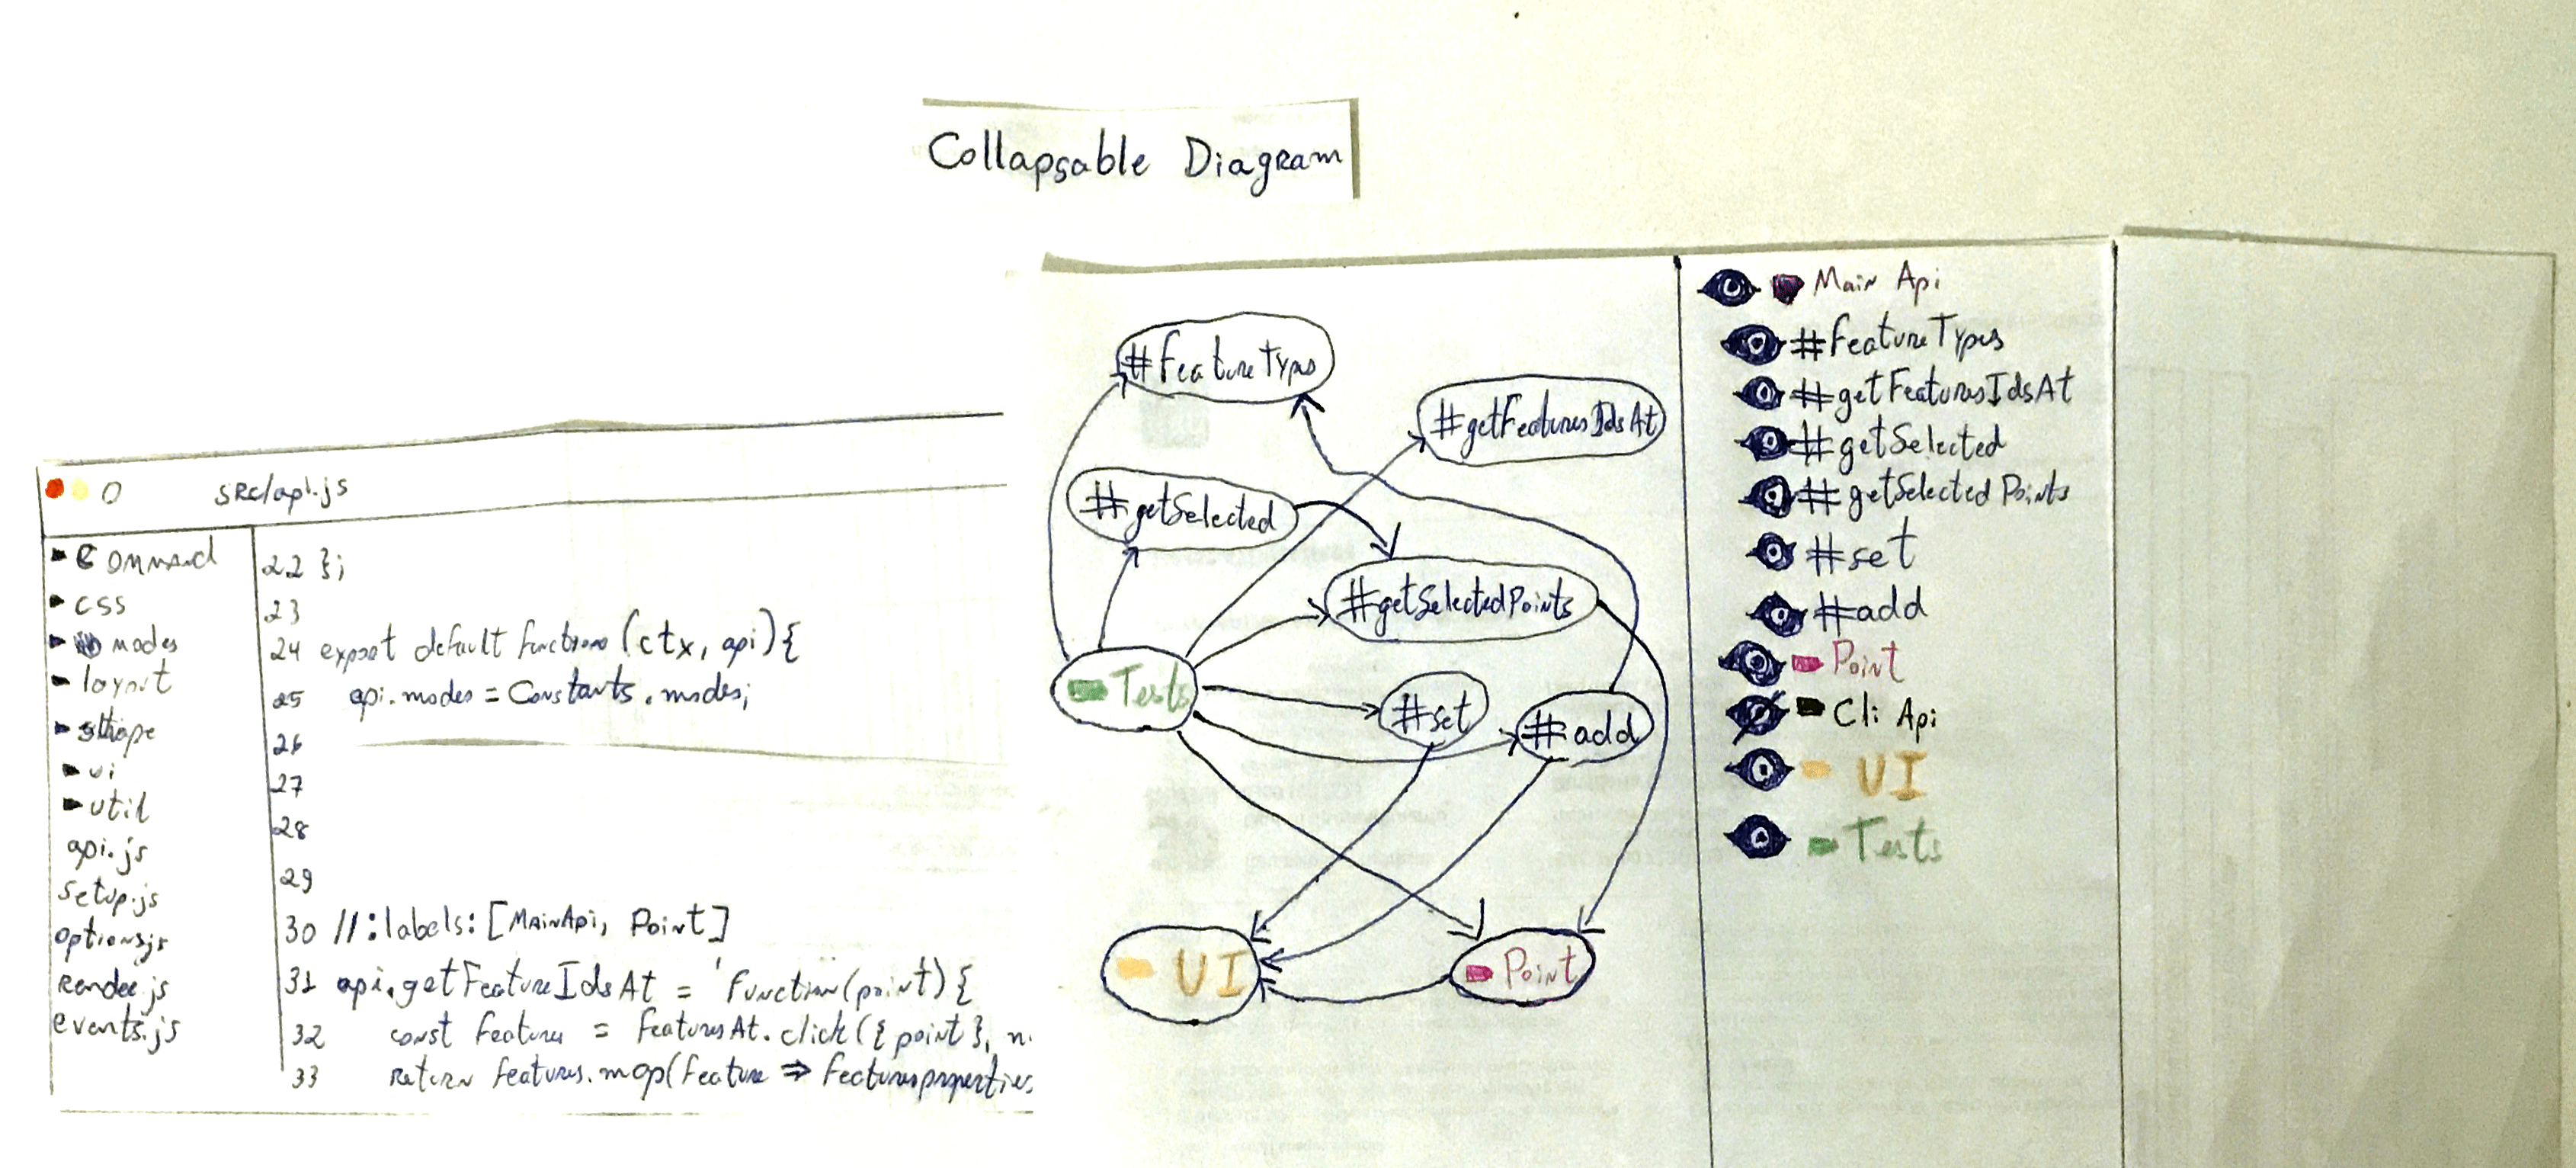 Collapsable Diagram
src/api.js
Command
css
modes
layout
shape
ui
util
api.js
setup.js
options.js
Render.js
events.js
22 };
23
24 export default function (ctx, api) {
25 api.modes = Constants.modes;
26
27
28
29
30 //:labels:[MainApi, Point]
31 api.getFeatureIdsAt = function(point) {
32 const features = featuresAt.click({point}, n
33 return features.map(feature => feature.properties
#featureTypes
#getFeaturesIdsAt
#getSelected
#getSelectedPoints
Tests
#set
#add
UI
Point
Main Api
#featureTypes
#getFeaturesIdsAt
#getSelected
#getSelectedPoints
#set
#add
Point
Cli Api
UI
Tests